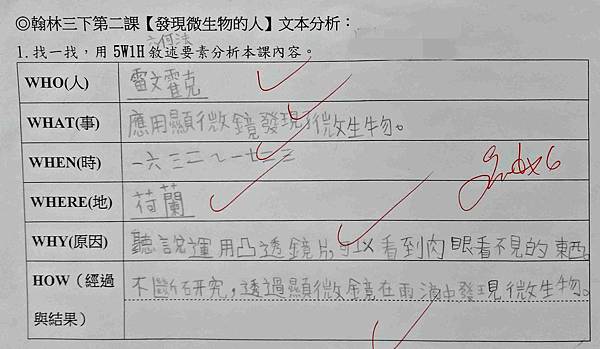 ◎翰林三下第二課【發現微生物的人】文本分析：
六何法
1.找一找，用 5W1H 敘述要素分析本課內容。
WHO(人) 雷文霍克
WHAT(事) 應用顯微鏡發現微生物。
WHEN(時) 一六三二～一七二三
WHERE(地) 荷蘭
WHY(原因) 聽說運用凸透鏡片可以看到肉眼看不見的東西。
HOW（經過與結果） 不斷研究，透過顯微鏡在雨滴中發現微生物。